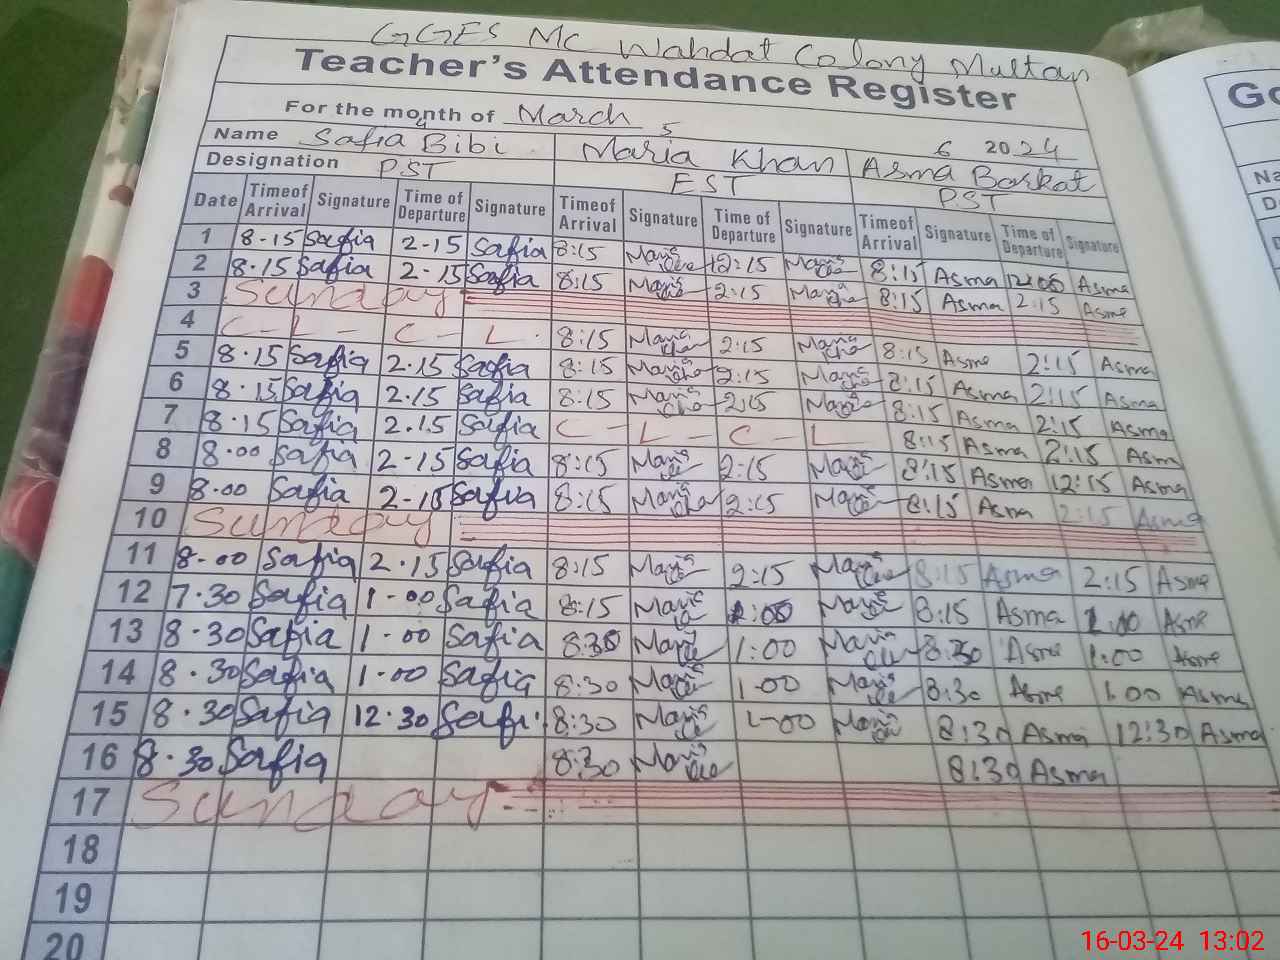 GGES MC Wahdat Colony Multan
Teacher's Attendance Register
For the month of March 2024
4 5 6
Name Safia Bibi Maria Khan Asma Barkat
Designation PST EST PST
Date Timeof Arrival Signature Time of Departure Signature Time of Arrival Signature Time of Departure Signature Timeof Arrival Signature Time of Departure Signature
1 8-15 Safia 2-15 Safia 8:15 Maria 12:15 Maria 8:15 Asma Asma
2 8.15 Safia 2-15 Safia 8:15 Maria 2:15 Maria 8:15 Asma 2:15 Asma
3 Sunday
4 C-L- C-L. 8:15 Maria 2:15 Maria 8:15 Asma 2:15 Asma
5 8.15 Safia 2.15 Safia 8:15 Maria 2:15 Maria 8:15 Asma 2:15 Asma
6 8.15 Safia 2.15 Safia 8:15 Maria 2:15 Maria 8:15 Asma 2:15 Asma
7 8.15 Safia 2.15 Safia C-L-C-L 8:15 Asma 2:15 Asma
8 8.00 Safia 2-15 Safia 8:15 Maria 2:15 Maria 8:15 Asma 12:15 Asma
9 8.00 Safia 2-15 Safia 8:15 Maria 2:15 Maria 8:15 Asma 2:15 Asma
10 Sunday
11 8-00 Safia 2.15 Safia 8:15 Maria 2:15 Maria 8:15 Asma 2:15 Asma
12 7.30 Safia 1-00 Safia 8:15 Maria Maria 8:15 Asma 1.00 Asma
13 8.30 Safia 1-00 Safia 8:30 Maria 1:00 Maria 8:30 Asma 1:00 Asma
14 8.30 Safia 1-00 Safia 8:30 Maria 1-00 Maria 8:30 Asma 1.00 Asma
15 8.30 Safia 12.30 Safi. 8:30 Maria 1-00 Maria 8:30 Asma 12:30 Asma
16 8.30 Safia 8:30 Maria 8:30 Asma
17 Sunday
18
19
20
Na
16-03-24 13:02